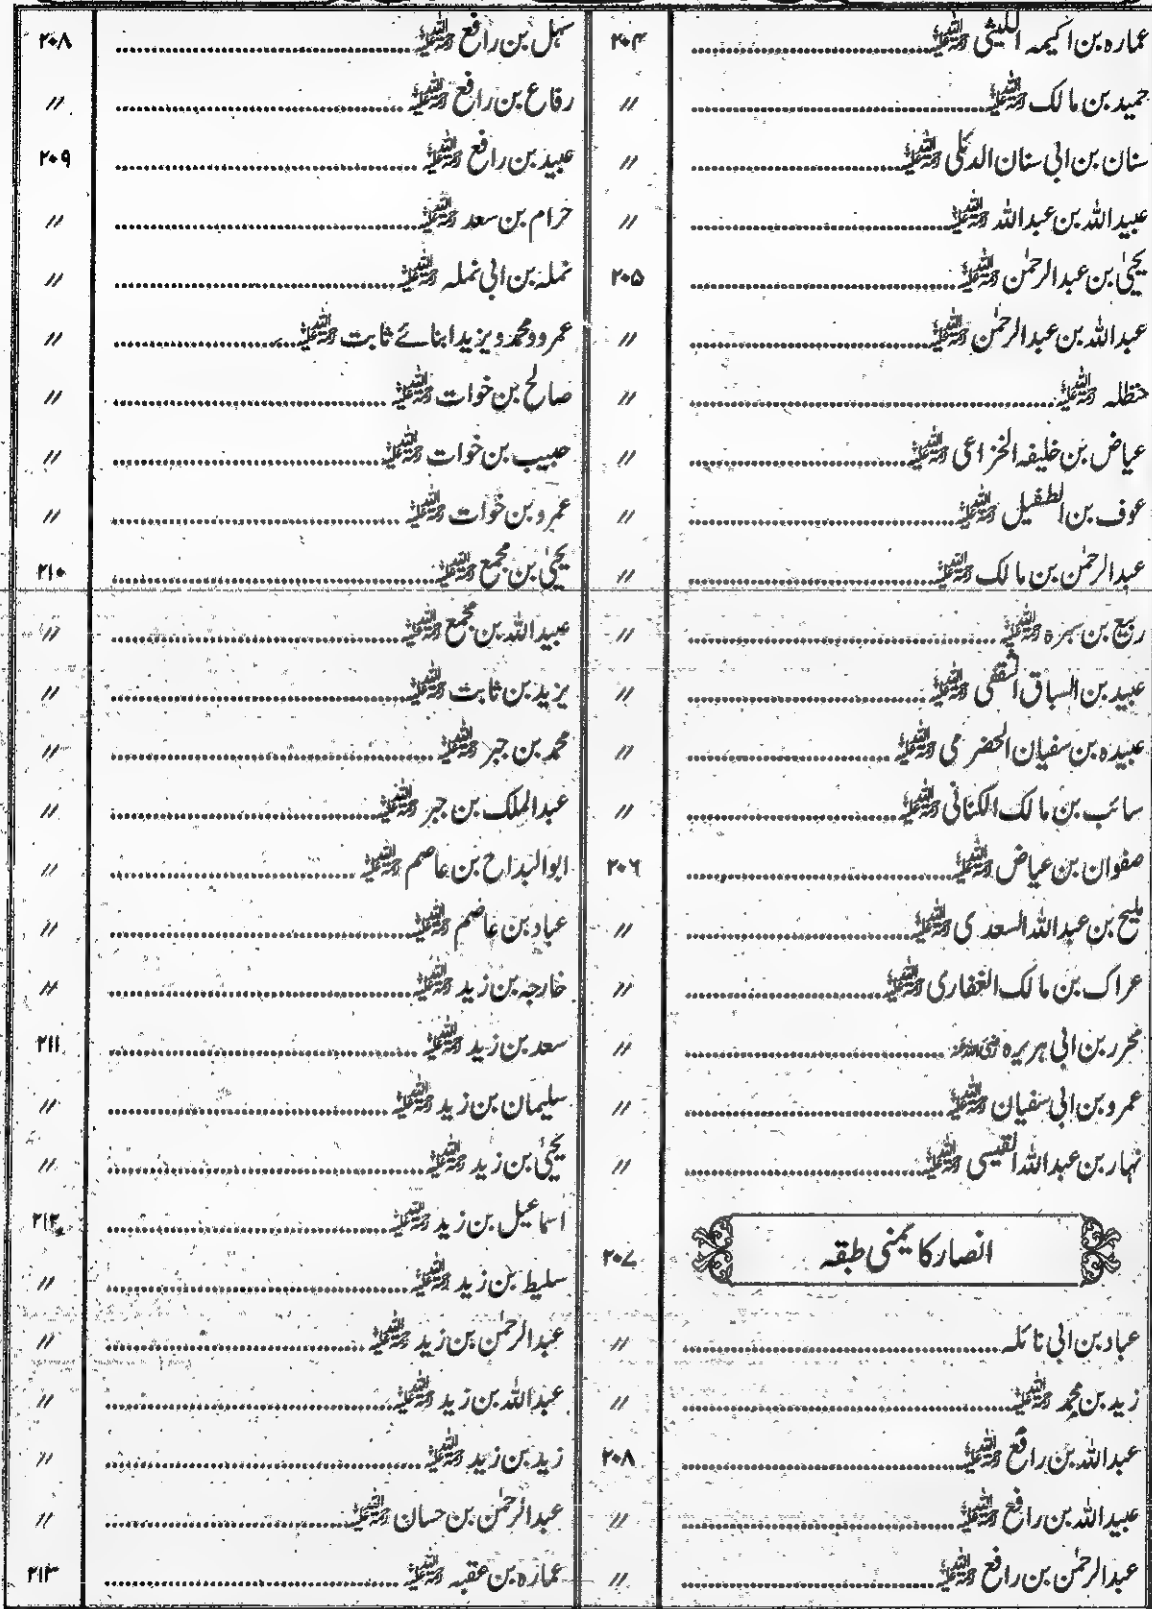 عمارہ بن اکیمہ اللیثی رحمۃ اللہ علیہ ........ ۲۰۴
حمید بن مالک رحمۃ اللہ علیہ ........ //
سنان بن ابی سنان الدئلی رحمۃ اللہ علیہ ........ //
عبید اللہ بن عبد اللہ رحمۃ اللہ علیہ ........ //
یحییٰ بن عبدالرحمٰن رحمۃ اللہ علیہ ........ ۲۰۵
عبداللہ بن عبدالرحمٰن رحمۃ اللہ علیہ ........ //
حنظلہ رحمۃ اللہ علیہ ........ //
عیاض بن خلیفہ الخزاعی رحمۃ اللہ علیہ ........ //
عوف بن الطفیل رحمۃ اللہ علیہ ........ //
عبدالرحمٰن بن مالک رحمۃ اللہ علیہ ........ //
ربیع بن سبرہ رحمۃ اللہ علیہ ........ //
عبید بن السباق الثقفی رحمۃ اللہ علیہ ........ //
عبیدہ بن سفیان الحضرمی رحمۃ اللہ علیہ ........ //
سائب بن مالک الکنانی رحمۃ اللہ علیہ ........ //
صفوان بن عیاض رحمۃ اللہ علیہ ........ ۲۰۶
ملیح بن عبداللہ السعدی رحمۃ اللہ علیہ ........ //
عراک بن مالک الغفاری رحمۃ اللہ علیہ ........ //
محرر بن ابی ہریرہ رضی اللہ عنہ ........ //
عمرو بن ابی سفیان رحمۃ اللہ علیہ ........ //
نہار بن عبداللہ القیسی رحمۃ اللہ علیہ ........ //
انصار کا یمنی طبقہ ۲۰۷
عباد بن ابی نائلہ ........ //
زید بن محمد رحمۃ اللہ علیہ ........ //
عبداللہ بن رافع رحمۃ اللہ علیہ ........ ۲۰۸
عبید اللہ بن رافع رحمۃ اللہ علیہ ........ //
عبدالرحمٰن بن رافع رحمۃ اللہ علیہ ........ //
سہل بن رافع رحمۃ اللہ علیہ ........ ۲۰۸
رفاع بن رافع رحمۃ اللہ علیہ ........ //
عبید بن رافع رحمۃ اللہ علیہ ........ ۲۰۹
حرام بن سعد رحمۃ اللہ علیہ ........ //
نملہ بن ابی نملہ رحمۃ اللہ علیہ ........ //
عمرو و محمد و یزید ابنائے ثابت رحمۃ اللہ علیہ ........ //
صالح بن خوات رحمۃ اللہ علیہ ........ //
حبیب بن خوات رحمۃ اللہ علیہ ........ //
عمرو بن خوات رحمۃ اللہ علیہ ........ //
یحییٰ بن مجمع رحمۃ اللہ علیہ ........ ۲۱۰
عبید اللہ بن مجمع رحمۃ اللہ علیہ ........ //
یزید بن ثابت رحمۃ اللہ علیہ ........ //
محمد بن جبر رحمۃ اللہ علیہ ........ //
عبدالملک بن جبر رحمۃ اللہ علیہ ........ //
ابوالبداح بن عاصم رحمۃ اللہ علیہ ........ //
عباد بن عاصم رحمۃ اللہ علیہ ........ //
خارجہ بن زید رحمۃ اللہ علیہ ........ //
سعد بن زید رحمۃ اللہ علیہ ........ ۲۱۱
سلیمان بن زید رحمۃ اللہ علیہ ........ //
یحییٰ بن زید رحمۃ اللہ علیہ ........ //
اسماعیل بن زید رحمۃ اللہ علیہ ........ ۲۱۲
سلیط بن زید رحمۃ اللہ علیہ ........ //
عبدالرحمٰن بن زید رحمۃ اللہ علیہ ........ //
عبداللہ بن زید رحمۃ اللہ علیہ ........ //
زید بن زید رحمۃ اللہ علیہ ........ //
عبدالرحمٰن بن حسان رحمۃ اللہ علیہ ........ //
عمارہ بن عقبہ رحمۃ اللہ علیہ ........ ۲۱۳